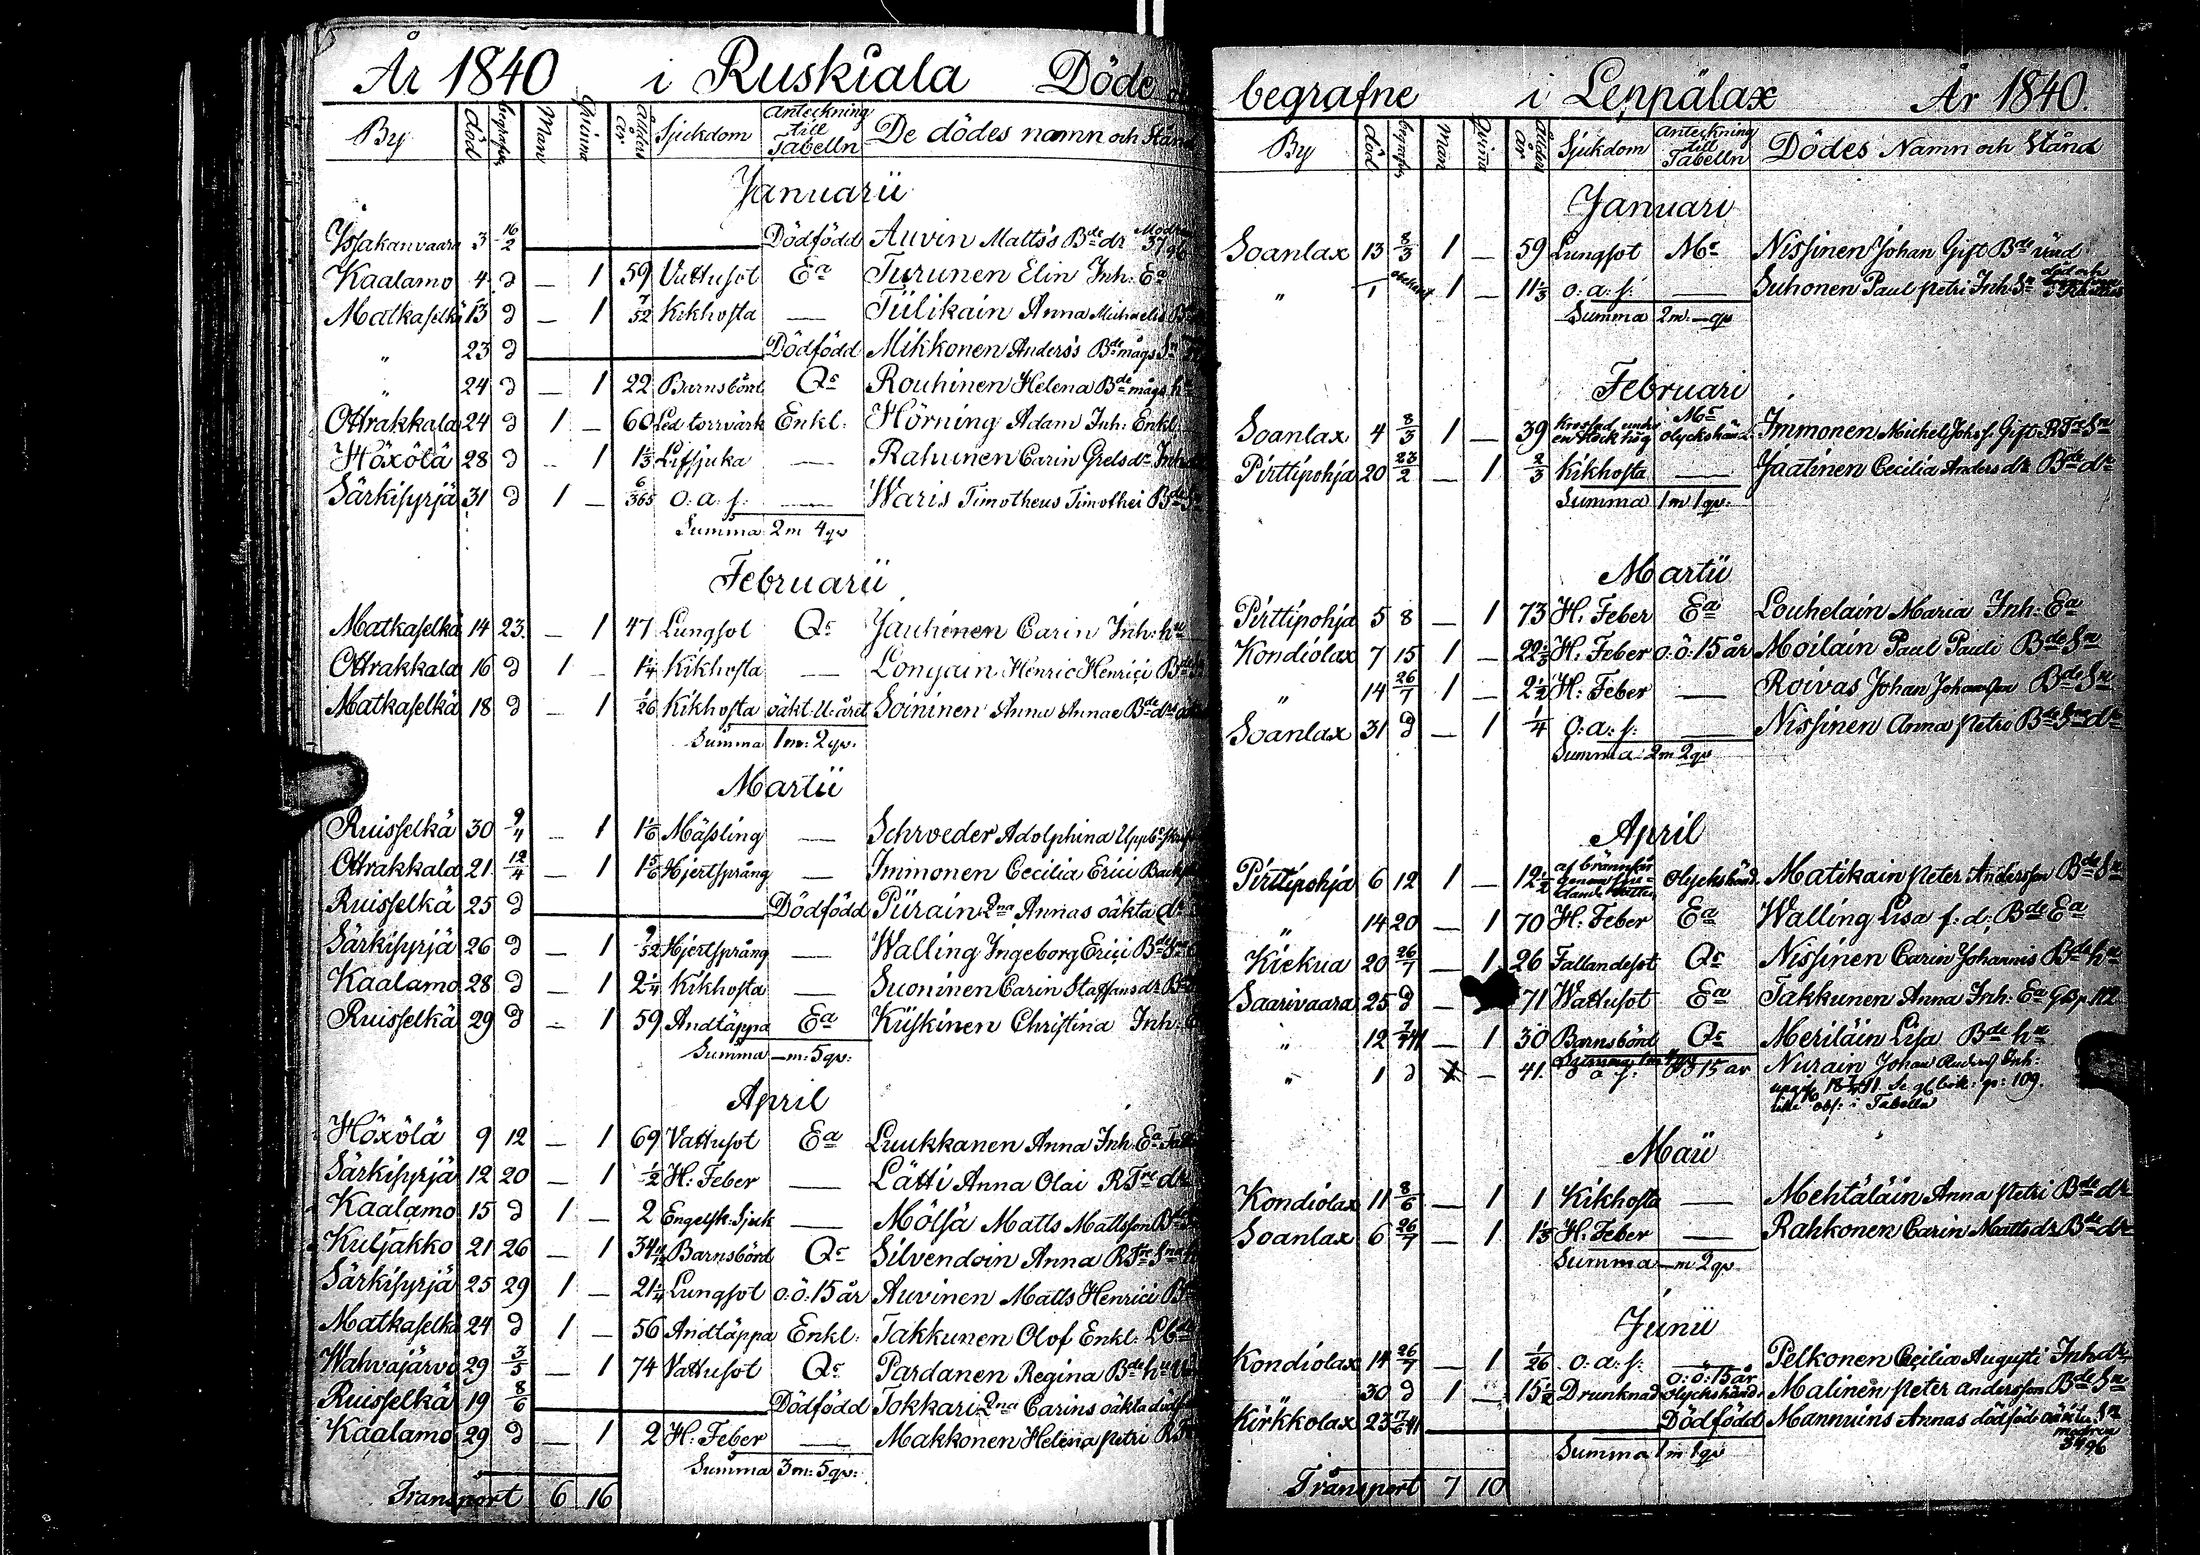 År 1840 i Ruskiala Döde
By död begrafne Man Qvinna Ålder år Sjukdom Anteckning till Tabelln De dödes namn och Stånd
Januarii
Yssakanvaara 3 16/2 Dödfödd Auvin Matts's Bde dr Modren 37 96
Kaalamo 4 d — 1 59 Vattusot Ea Turunen Elin Inh: Ea
Matkaselkä 13 d — 1 7/52 Kikhosta — Tiilikain Anna Michaelis
" 23 d Dödfödd Mikkonen Anders's Bde mågs Sn
" 24 d — 1 22 Barnsbörd Qs Rouhinen Helena Bde mågs hu
Ottrakkala 24 d 1 — 60 Led torrvärk Enkl: Hörning Adam Inh: Enkl:
Höxölä 28 d — 1 1 1/3 Lifsjuka — Rahunen Carin Grels dr Inh
Särkisyrjä 31 d 1 — 6/365 o: a: s: — Waris Timotheus Timothei Bde Sn
Summa 2 m 4 qv
Februarii
Matkaselkä 14 23 — 1 47 Lungsot Qs Jauhinen Carin Inh: hu
Ottrakkala 16 d 1 — 1 1/4 Kikhosta — Longain Henric Henrici Bde
Matkaselkä 18 d — 1 1/26 Kikhosta oäkt: U: året Soininen Anna Annae Bde drs
Summa 1 m: 2 qv:
Martii
Ruisselkä 30 9/4 — 1 1 1/6 Mässling — Schroeder Adolphina
Ottrakkala 21 12/4 — 1 1 5/6 Hjertsprång — Immonen Cecilia Erici
Ruisselkä 25 d Dödfödd Piirain Qna Annas oäkta dr
Särkisyrjä 26 d — 1 9/52 Hjertsprång — Walling Ingeborg Erici Bde
Kaalamo 28 d — 1 2 1/4 Kikhosta — Suoninen Carin Staffans dr Bde
Ruisselkä 29 d — 1 59 Andtäppa Ea Kiiskinen Christina Inh:
Summa — m: 5 qv:
April
Höxölä 9 12 — 1 69 Vattusot Ea Luukkanen Anna Inh: Ea
Särkisyrjä 12 20 — 1 1/2 H: Feber — Lätti Anna Olai RTre dr
Kaalamo 15 d 1 — 2 Engelsk: Sjuk — Mölsä Matts Mattsson Bde
Kuljakko 21 26 — 1 34 Barnsbörd Qs Silvendoin Anna RTre Sns
Särkisyrjä 25 29 1 — 21 1/4 Lungsot o: ö: 15 år Auvinen Matts Henrici
Matkaselkä 24 d 1 — 56 Andtäppa Enkl: Takkunen Olof Enkl:
Wahvajärvi 29 3/5 — 1 74 Vattusot Qs Pardanen Regina Bde hu
Ruisselkä 19 8/6 Dödfödd Tokkari Qna Carins oäkta
Kaalamo 29 d — 1 2 H: Feber — Makkonen Helena Petri
Summa 3 m: 5 qv:
Transport 6 16
begrafne i Leppälax År 1840.
By död begrafne Man Qvina Ålder år Sjukdom Anteckning till Tabelln Dödes Namn och Stånd
Januari
Soanlax 13 8/3 1 — 59 Lungsot Ms Nissinen Johan Gift Bde
" 1 1 — 11 1/3 o: a: s: — Suhonen Paul Petri Inh: Sn
Summa 2 m: — qv
Februari
Soanlax 4 8/3 1 — 39 Krossad under en stock hög Ms olyckshänd: Immonen Michel Johss. Gift RTre Sn
Pirttipohja 20 23/2 — 1 2/3 Kikhosta — Jaatinen Cecilia Anders dr Bde dr
Summa 1 m 1 qv:
Martii
Pirttipohja 5 8 — 1 73 H: Feber Ea Louhelain Maria Inh: Ea
Kondiolax 7 15 1 — 22 1/3 H: Feber o: ö: 15 år Moilain Paul Pauli Bde Sn
" 14 26/7 1 — 2 1/2 H: Feber — Roivas Johan Johansson Bde Sn
Soanlax 31 d — 1 1/4 o: a: s: — Nissinen Anna Petri Bde Sns dr
Summa 2 m 2 qv
April
Pirttipohja 6 12 1 — 12 1/2 olyckshänd. Matikain Peter Andersson Bde Sn
" 14 20 — 1 70 H: Feber Ea Walling Lisa f: d: Bde Ea
Kiekua 20 26/7 — 1 26 Fallandesot Qs Nissinen Carin Johannis Bde hu
Saarivaara 25 d — 71 Wattusot Ea Takkunen Anna Inh: Ea
" 12 7/4 41 — 1 30 Barnsbörd Qs Meriläin Lisa Bde hu
Summa 1 m 4 qv
" 1 d — 41. o a s: o ö 15 år Nurain Johan Anders Inh:
109.
obs: i Tabelln
Maii
Kondiolax 11 8/6 — 1 1 Kikhosta — Mehtäläin Anna Petri Bde dr
Soanlax 6 26/7 — 1 1 1/3 H: Feber — Rahkonen Carin Matts dr Bde dr
Summa — m 2 qv
Junii
Kondiolax 14 26/7 — 1 1/26 o: a: s: — Pelkonen Cecilia Augusti Inh dr
" 30 d 1 — 15 1/2 Drunknad o: ö: 15 år olyckshänd: Malinen Peter Andersson Bde Sn
Kirkkolax 23 17/6 41 Dödfödd Mannuins Annas dödföde oäkta Sn modren 34 96
Summa 1 m 1 qv
Transport 7 10